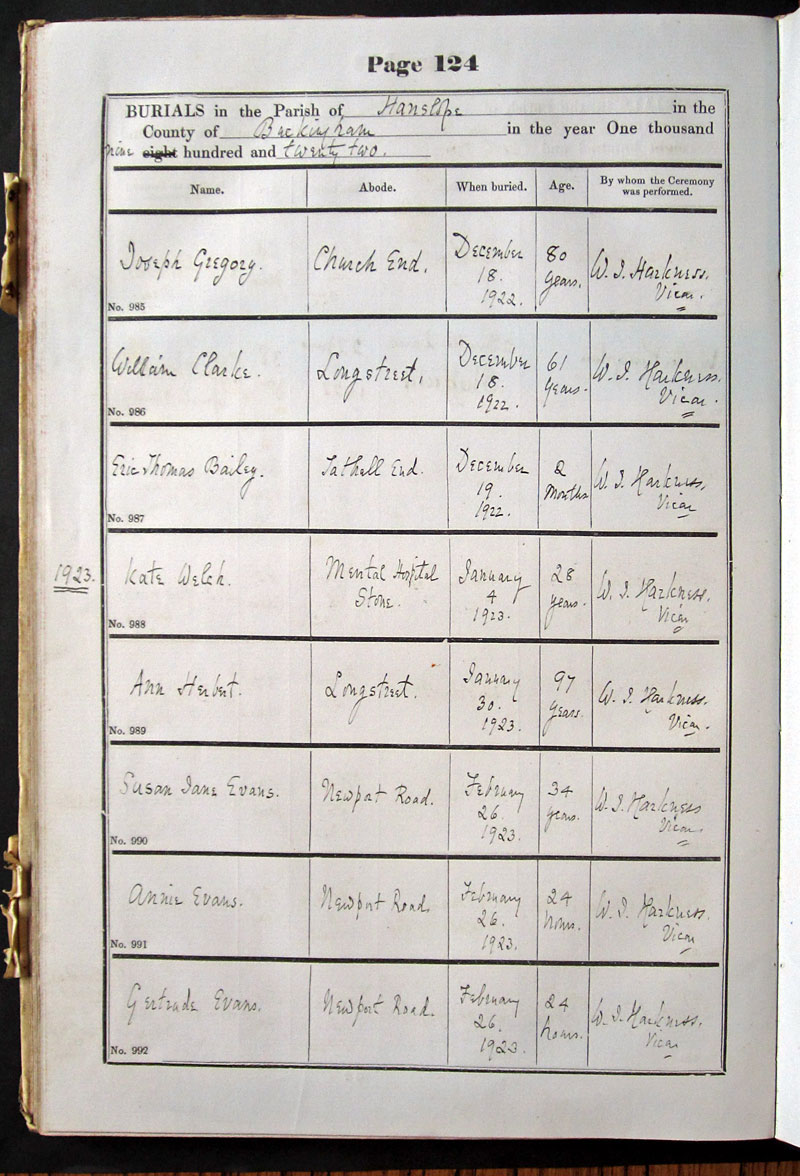 Page 124
BURIALS in the Parish of Hanslope in the
County of Buckingham in the year One thousand
nine eight hundred and twenty two.
Name. Abode. When buried. Age. By whom the Ceremony was performed.
Joseph Gregory. Church End. December 18. 1922. 80 years. W. J. Harkness. Vicar.
No. 985
William Clarke. Longstreet. December 18. 1922. 61 years. W. J. Harkness. Vicar.
No. 986
Eric Thomas Bailey. Tathall End. December 19. 1922. 2 Months W. J. Harkness. Vicar
No. 987
1923. Kate Welch. Mental Hospital Stone. January 4 1923. 28 years. W. J. Harkness. Vicar
No. 988
Ann Herbert. Longstreet. January 30. 1923. 97 years. W. J. Harkness. Vicar.
No. 989
Susan Jane Evans. Newport Road. February 26. 1923. 34 years. W. J. Harkness Vicar.
No. 990
Annie Evans. Newport Road. February 26. 1923. 24 hours. W. J. Harkness. Vicar
No. 991
Gertrude Evans. Newport Road. February 26. 1923. 24 hours. W. J. Harkness. Vicar
No. 992